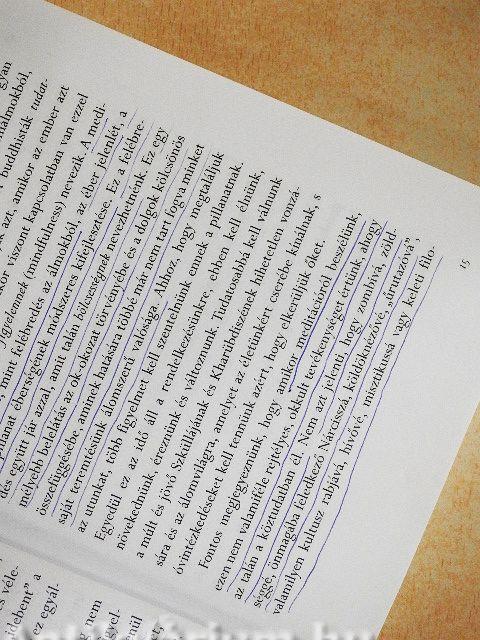 gyan
almokból,
buddhisták tudat-
k azt, amikor az ember azt
kor viszont kapcsolatban van ezzel
figyelemnek (mindfulness) nevezik. A medi-
, mint felébredés az álmokból, az éber jelenlét, a
pillanat éberségének módszeres kifejlesztése. Ez a felébre-
dés együtt jár azzal, amit talán bölcsességnek nevezhetnénk. Ez egy
mélyebb belelátás az ok-okozat törvényébe és a dolgok kölcsönös
összefüggésébe, aminek hatására többé már nem tart fogva minket
saját teremtésünk álomszerű valósága. Ahhoz, hogy megtaláljuk
az utunkat, több figyelmet kell szentelnünk ennek a pillanatnak.
Egyedül ez az idő áll a rendelkezésünkre, ebben kell élnünk,
növekednünk, éreznünk és változnunk. Tudatosabbá kell válnunk
a múlt és jövő Szküllájának és Kharübdiszének hihetetlen vonzá-
sára és az álomvilágra, amelyet az életünkért cserébe kínálnak, s
óvintézkedéseket kell tennünk azért, hogy elkerüljük őket.
Fontos megjegyeznünk, hogy amikor meditációról beszélünk,
ezen nem valamiféle rejtélyes, okkult tevékenységet értünk, ahogy
az talán a köztudatban él. Nem azt jelenti, hogy zombivá, zöld-
séggé, önmagába feledkező Nárcisszá, köldöknézővé, „űrutazóvá”,
valamilyen kultusz rabjává, hívővé, misztikussá vagy keleti filo-
15
és véle-
idebent” a
ez egyál-
nem